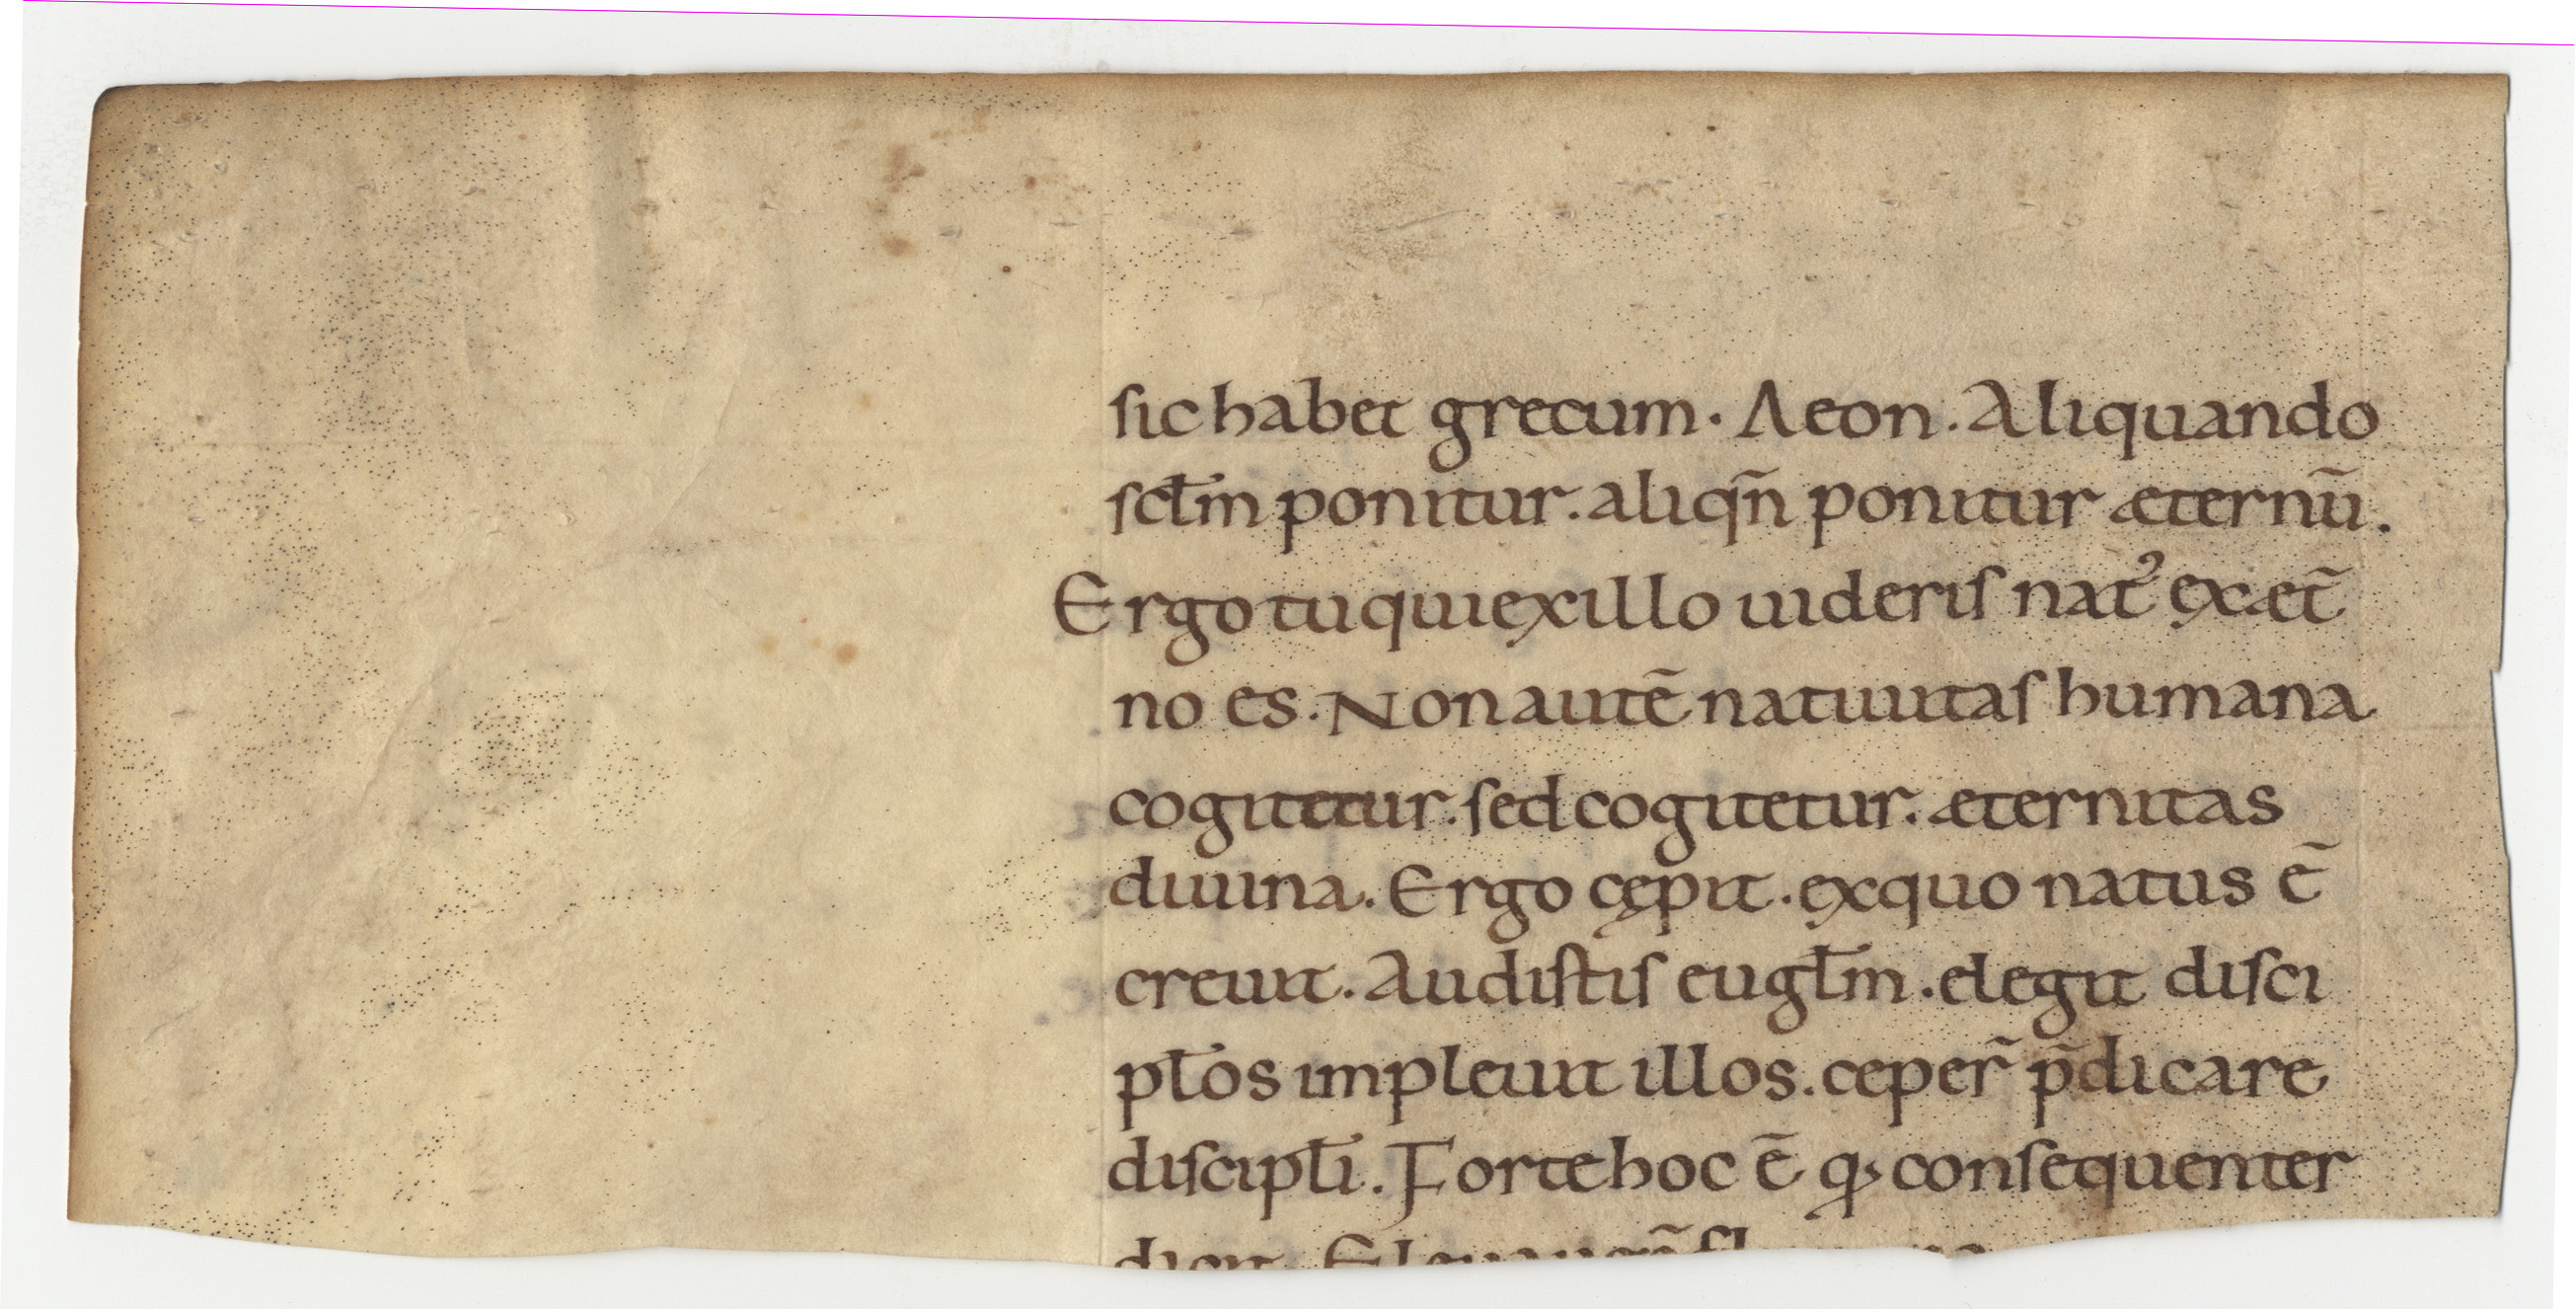 sic habet grecum. Aeon. Aliquando
scłm ponitur. aliqn̄ ponitur æternū.
Ergo tu qui ex illo uideris nat᷒ ex æt̄
no es. Non autē natiuitas humana
cogitetur. sed cogitetur. æternitas
diuina. Ergo cępit. ex quo natus ē
creuit. Audistis eugłm. elegit disci
płos impleuit illos. ceper̄ p̄dicare
discipłi. Forte hoc ē qđ consequenter